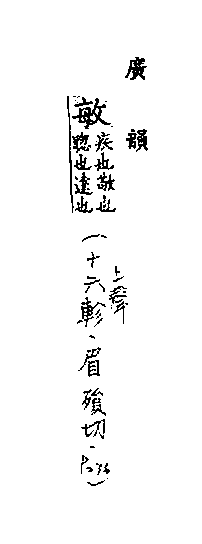 廣韻
敏疾也敬也
聦也達也
(上聲十六軫、眉殞切、P276)